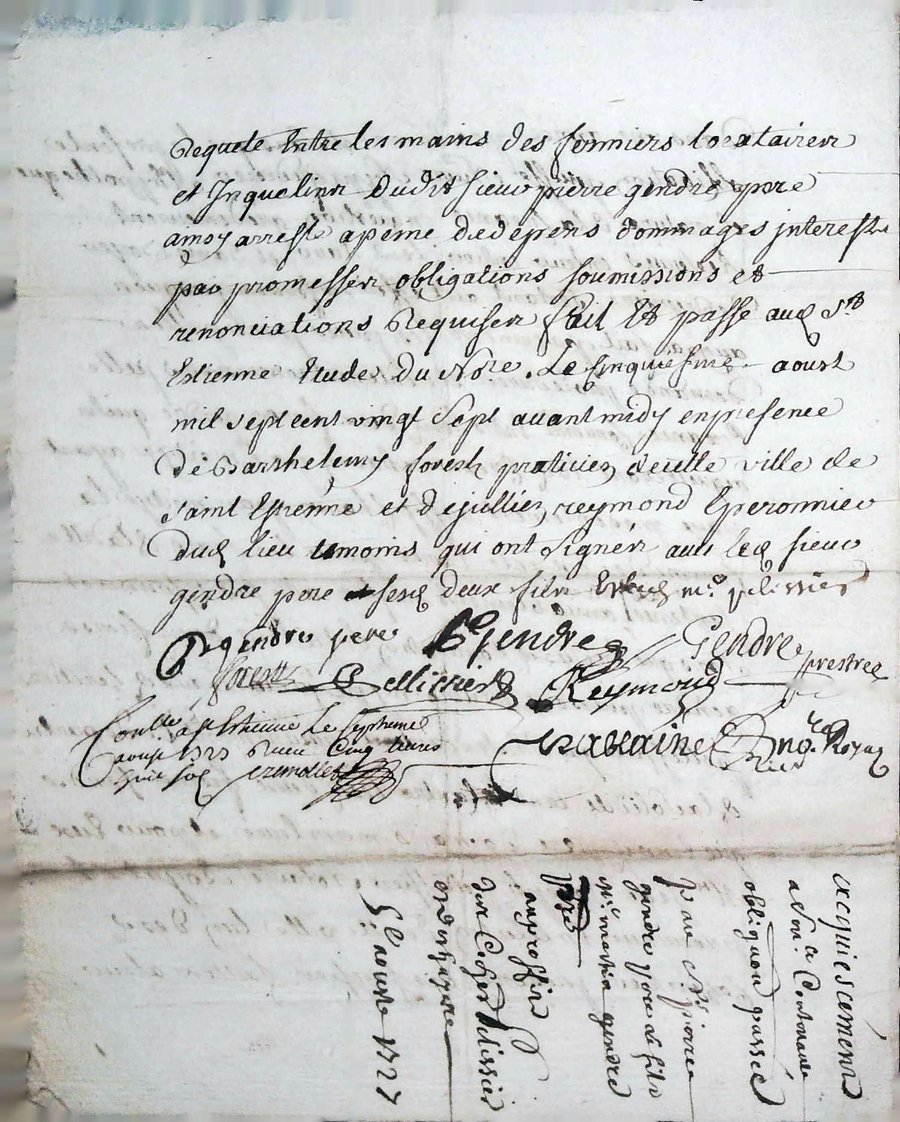 Requete Entre les mains des fermiers locataires
et Inquelins dudit sieur pierre gendre pere
amoyarrest a peine dedépens dommages interests
par promesses obligations soumissions et
renonciations Requises fait Et passé aud St
Estienne Etude du Nore. Le sinquiesme aoust
mil sept cent vingt sept avant midy en presence
de Barthelemy forest praticien de cette ville de
saint Estienne et de jullien reymond Eperonnier
dud lieu temoins qui ont signés avec led sieur
gendre pere et sesd deux fils Et led mr pelissier
gendre pere
Gendre
Gendre prestre
forest
Pellissier
Reymond
Conllé a St Estienne Le septieme
aoust 1727 Receu Cinq livres
huit sols
nore Royal
acquiescement
a Sentce Contenant
obligaon passée
par sr pierre
gendre pere et fils
mre gendre
pbre
au proffit
de sr pelissier
5e aoust 1727